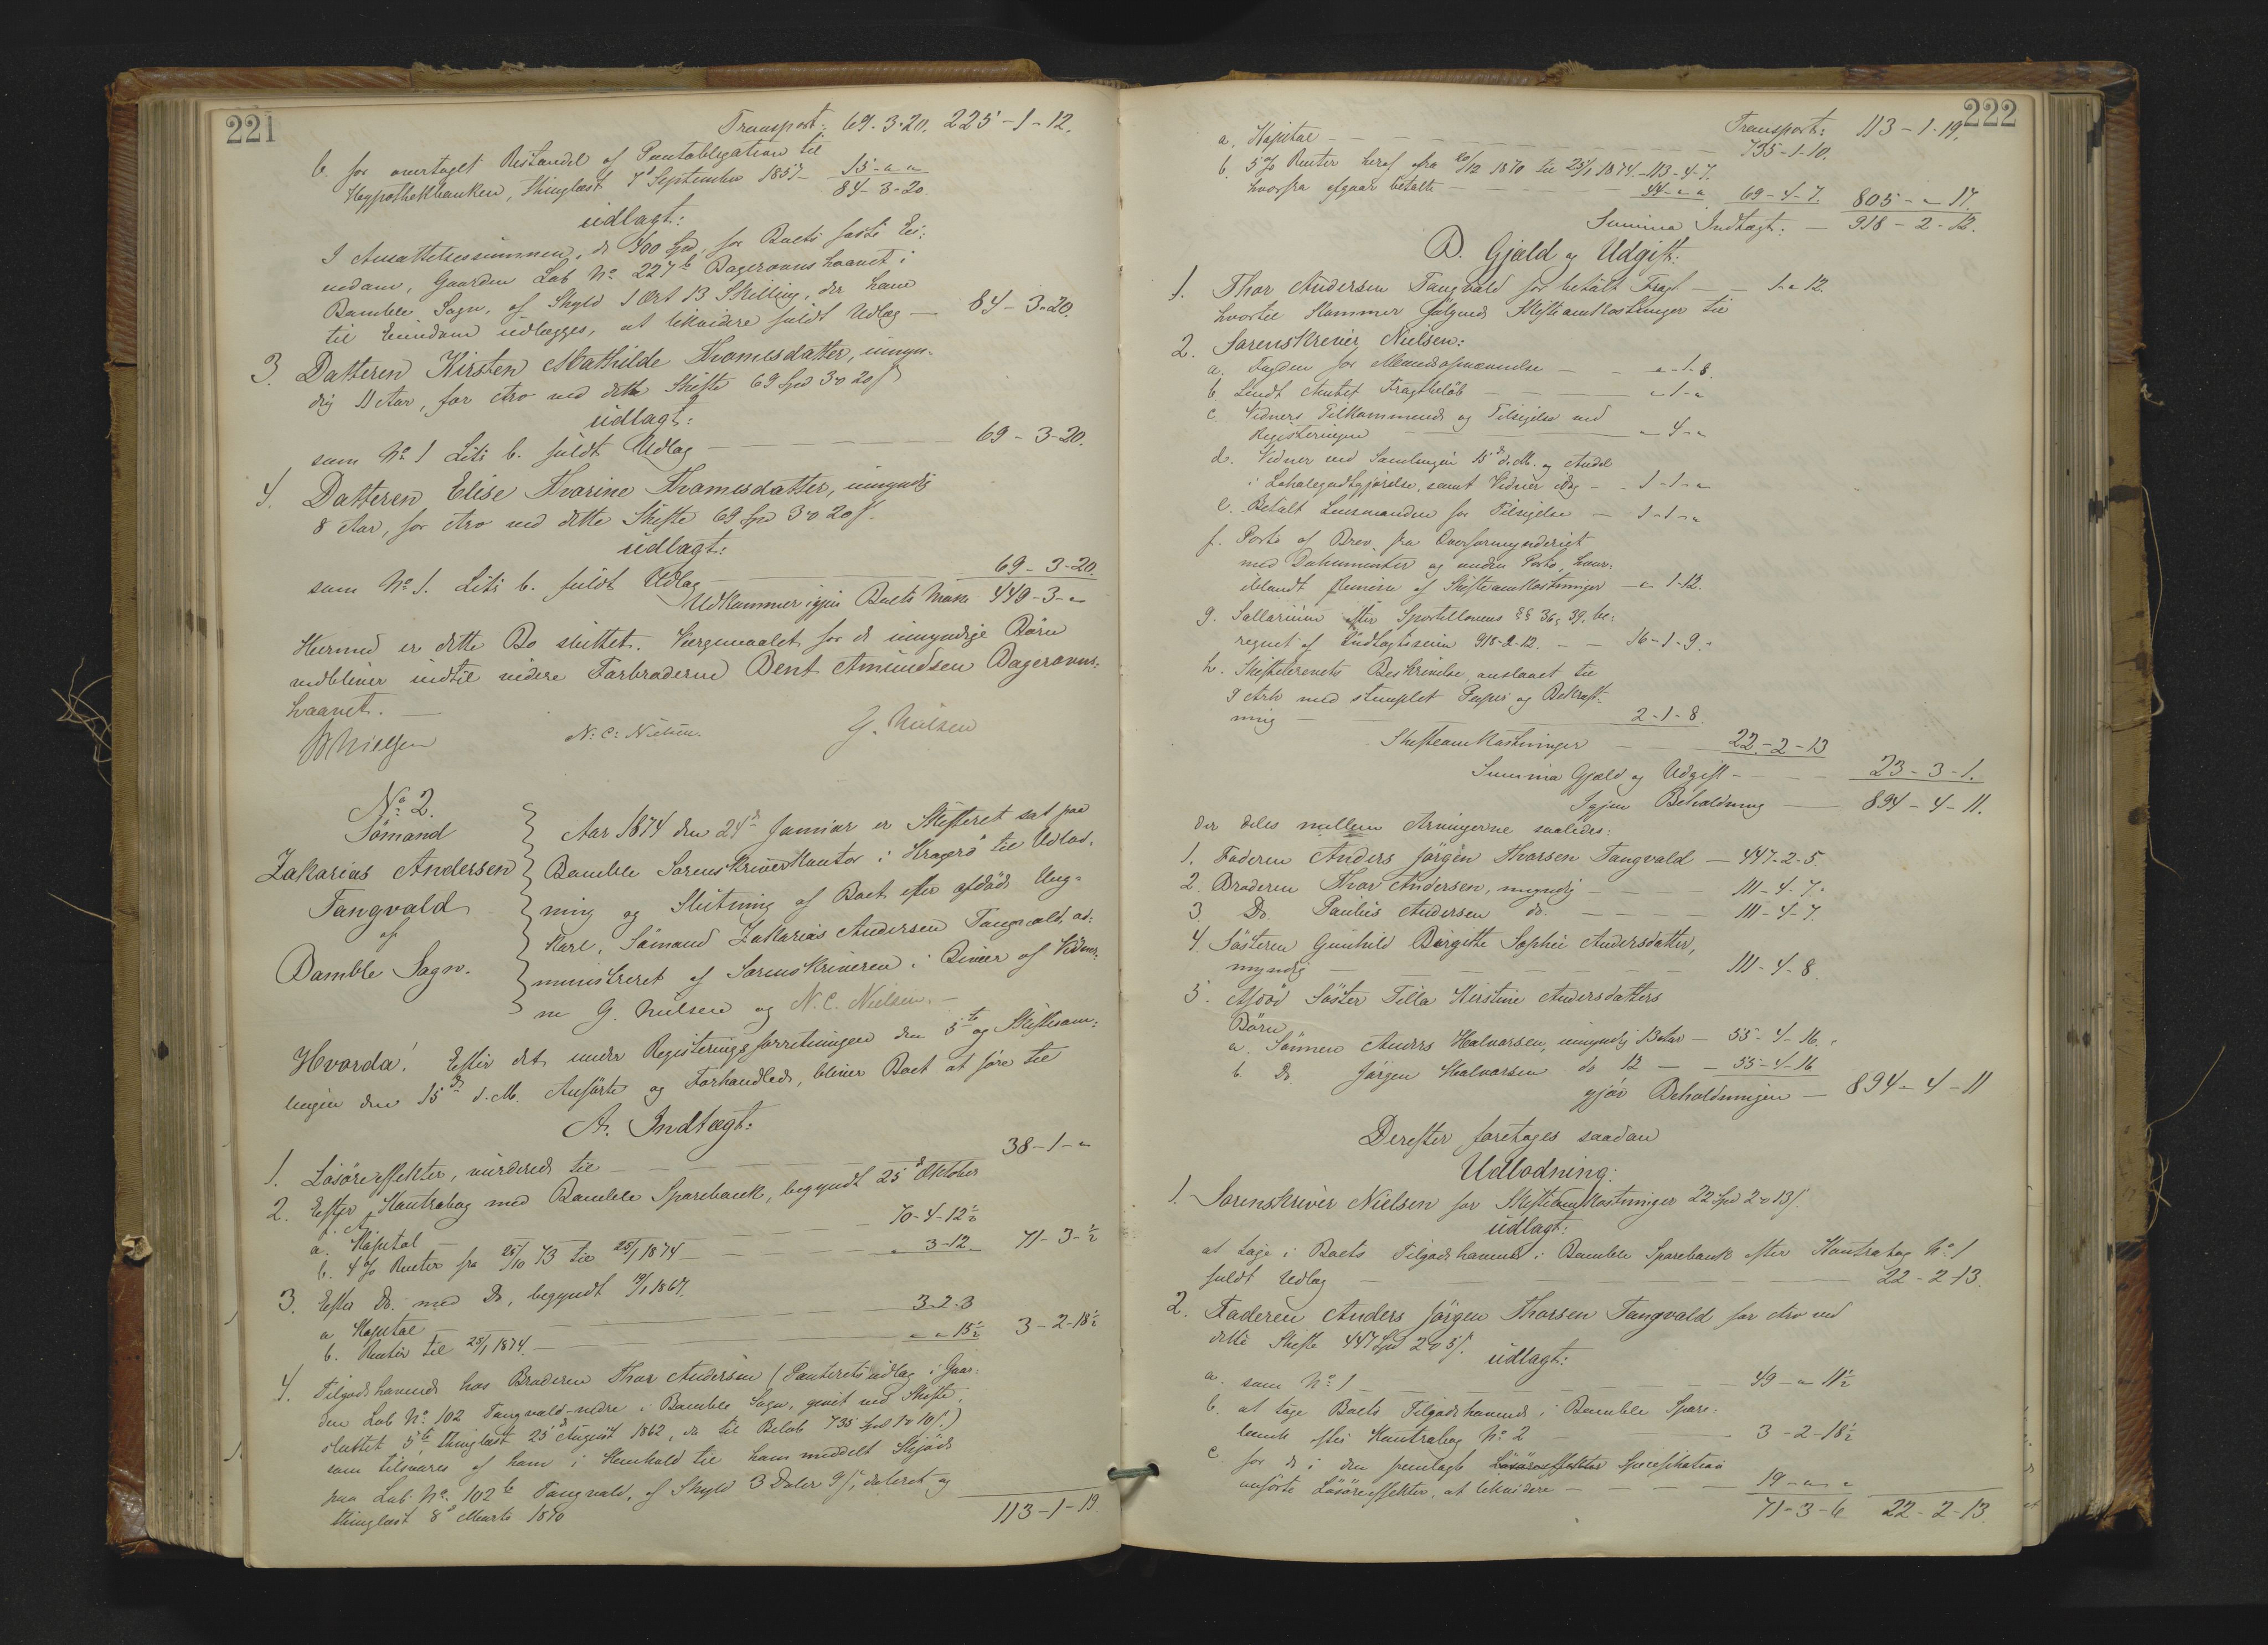 221
Transport: 69-3-20. 225-1-12.
b. for overtaget Restandel af Pantobligation til
Hypothekbanken, thinglæst 7d September 1857 - 15-"-"
84-3-20.
udlagt:
I Ansættelsessummen, de 400 Spd, for Boets faste Ei-
endom, Gaarden Lab No 227b Dagsrovns haavet i
Bamble Sogn, af Skyld 1 Ort 13 Skilling, der ham
til Eiendom udlægges, at likvidere fuldt Udlæg - 84-3-20.
3. Datteren Kirsten Mathilde Thomesdatter, umyn-
dig 11 Aar, for Arv ved dette Skifte 69 Spd 3 o 20 s
udlagt:
som No 1 Litr b. fuldt Udlæg - 69-3-20.
4. Datteren Elise Thorine Thomesdatter, umyndig
8 Aar, for Arv ved dette Skifte 69 Spd 3 o 20 s.
udlagt:
som No 1. Litr b. fuldt Udlæg - 69-3-20.
Udkommer igjen Boets Masse 449-3-"
Hermed er dette Bo sluttet. Værgemaalet for de umyndige Børn
vedbliver indtil videre Farbroderen Bent Amundsen Dagsrovns-
haavet. -
Nielsen N. C. Nielsen. G. Nielsen
No 2.
Sømand
Zakarias Andersen
Tangvald
af
Bamble Sogn.
Aar 1874 den 24d Januar er Skifteret sat paa
Bamble Sorenskriverkontor i Kragerø til Udlod-
ning og Slutning af Boet efter afdøde Ung-
karl, Sømand Zakarias Andersen Tangvald, ad-
ministreret af Sorenskriveren i Overvær af Vidner-
ne G. Nielsen og N. C. Nielsen. -
Hvorda! Efter det under Registeringsforretningen den 5te og Skiftesam-
lingen den 15de d. M. Anførte og Forhandlede, bliver Boet at føre til
A. Indtægt:
1. Løsøreeffekter, vurderede til - 38-1-"
2. Efter Kontrabog med Bamble Sparebank, begyndt 25d Oktober
f. A.
a. Kapital - 70-4-12½
b. 4% Renter fra 25/10 73 til 25/1 1874 - "-3-12 71-3-½
3. Efter Do. med Do, begyndt 19/1 1867.
a. Kapital - 3-2-3
b. Renter til 25/1 1874. - "-"-15½ 3-2-18½
4. Tilgodehavende hos Broderen Thor Andersen (Panteretsudlæg i Gaar-
den Lab No 102 Tangvald-nedre i Bamble Sogn, givet ved Skifte,
sluttet 5te, thinglæst 25d August 1862, der til Beløb 735 Spd 1 o 10 s.)
som tilsvares af ham i Henhold til ham meddelt Skjøde
paa Lab. No. 102b Tangvald, af Skyld 3 Daler 9 s, dateret og
thinglæst 8d Marts 1870
113-1-19
222
Transport: 113-1-19.
a. Kapital - 735-1-10.
b. 5% Renter heraf fra 20/12 1870 til 25/1 1874 - 113-4-7.
hvorfra afgaar betalte - 44-"-" 69-4-7. 805-"-17.
Summa Indtægt: - 918-2-12.
B. Gjæld og Udgift:
1. Thor Andersen Tangvald for betalt Fragt - 1-"-12.
hvortil kommer følgende Skifteomkostninger til
2. Sorenskriver Nielsen:
a. Fogden for Mændsopnævnelse - "-1-8.
b. Sendt Amtet Fragtbeløb - "-1-"
c. Vidners Tilkommende og Tilsigelse ved
Registeringen - "-4-"
d. Vidner ved Samlingen 15de d. M. og Andel
i Lokalegodtgjørelse, samt Vidner idag - 1-1-"
e. Betalt Lensmanden for Tilsigelse - 1-1-"
f. Porto af Brev fra Overformynderiet
med Dokumenter og anden Porto, hvor-
iblandt af Skifteomkostninger - " 1-12.
g. Sallarium efter Sportellovens §§ 36, 39, be-
regnet af Indtægtssum 918-2-12. - 16-1-9.
h. Skiftebrevets Beskrivelse, anslaaet til
9 Ark med stemplet Papir og Bekræft-
ning - 2-1-8.
Skifteomkostninger - 22-2-13
Summa Gjæld og Udgift - 23-3-1.
Igjen Beholdning - 894-4-11.
der deles mellem Arvingerne saaledes:
1. Faderen Anders Jørgen Thorsen Tangvald - 447-2-5.
2. Broderen Thor Andersen, myndig - 111-4-7.
3. Do. Paulus Andersen do. - 111-4-7.
4. Søsteren Gunhild Birgitte Sophie Andersdatter,
myndig - 111-4-8.
5. Afdød Søster Tilla Kirstine Andersdatters
Børn
a. Sønnen Anders Halvorsen, umyndig Aar - 55-4-16.
b. Do. Jørgen Halvorsen do 12 - 55-4-16
gjør Beholdningen - 894-4-11
Derefter foretoges saadan
Udlodning:
1. Sorenskriver Nielsen for Skifteomkostninger 22 Spd 2 o 13 s.
udlagt:
at tage i Boets Tilgodehavende i Bamble Sparebank efter Kontrabog No 1
fuldt Udlæg - 22-2-13.
2. Faderen Anders Jørgen Thorsen Tangvald for Arv ved
dette Skifte 447 Spd 2 o 5 s. udlagt:
a. som No 1 - 49-"-11½
b. at tage Boets Tilgodehavende i Bamble Spare-
bank efter Kontrabog No 2 - 3-2-18½
c. for de i den fremlagte Løsøreeffekter Specifikation
anførte Løsøreeffekter, at likvidere - 19-"-"
71-3-6 22-2-13.